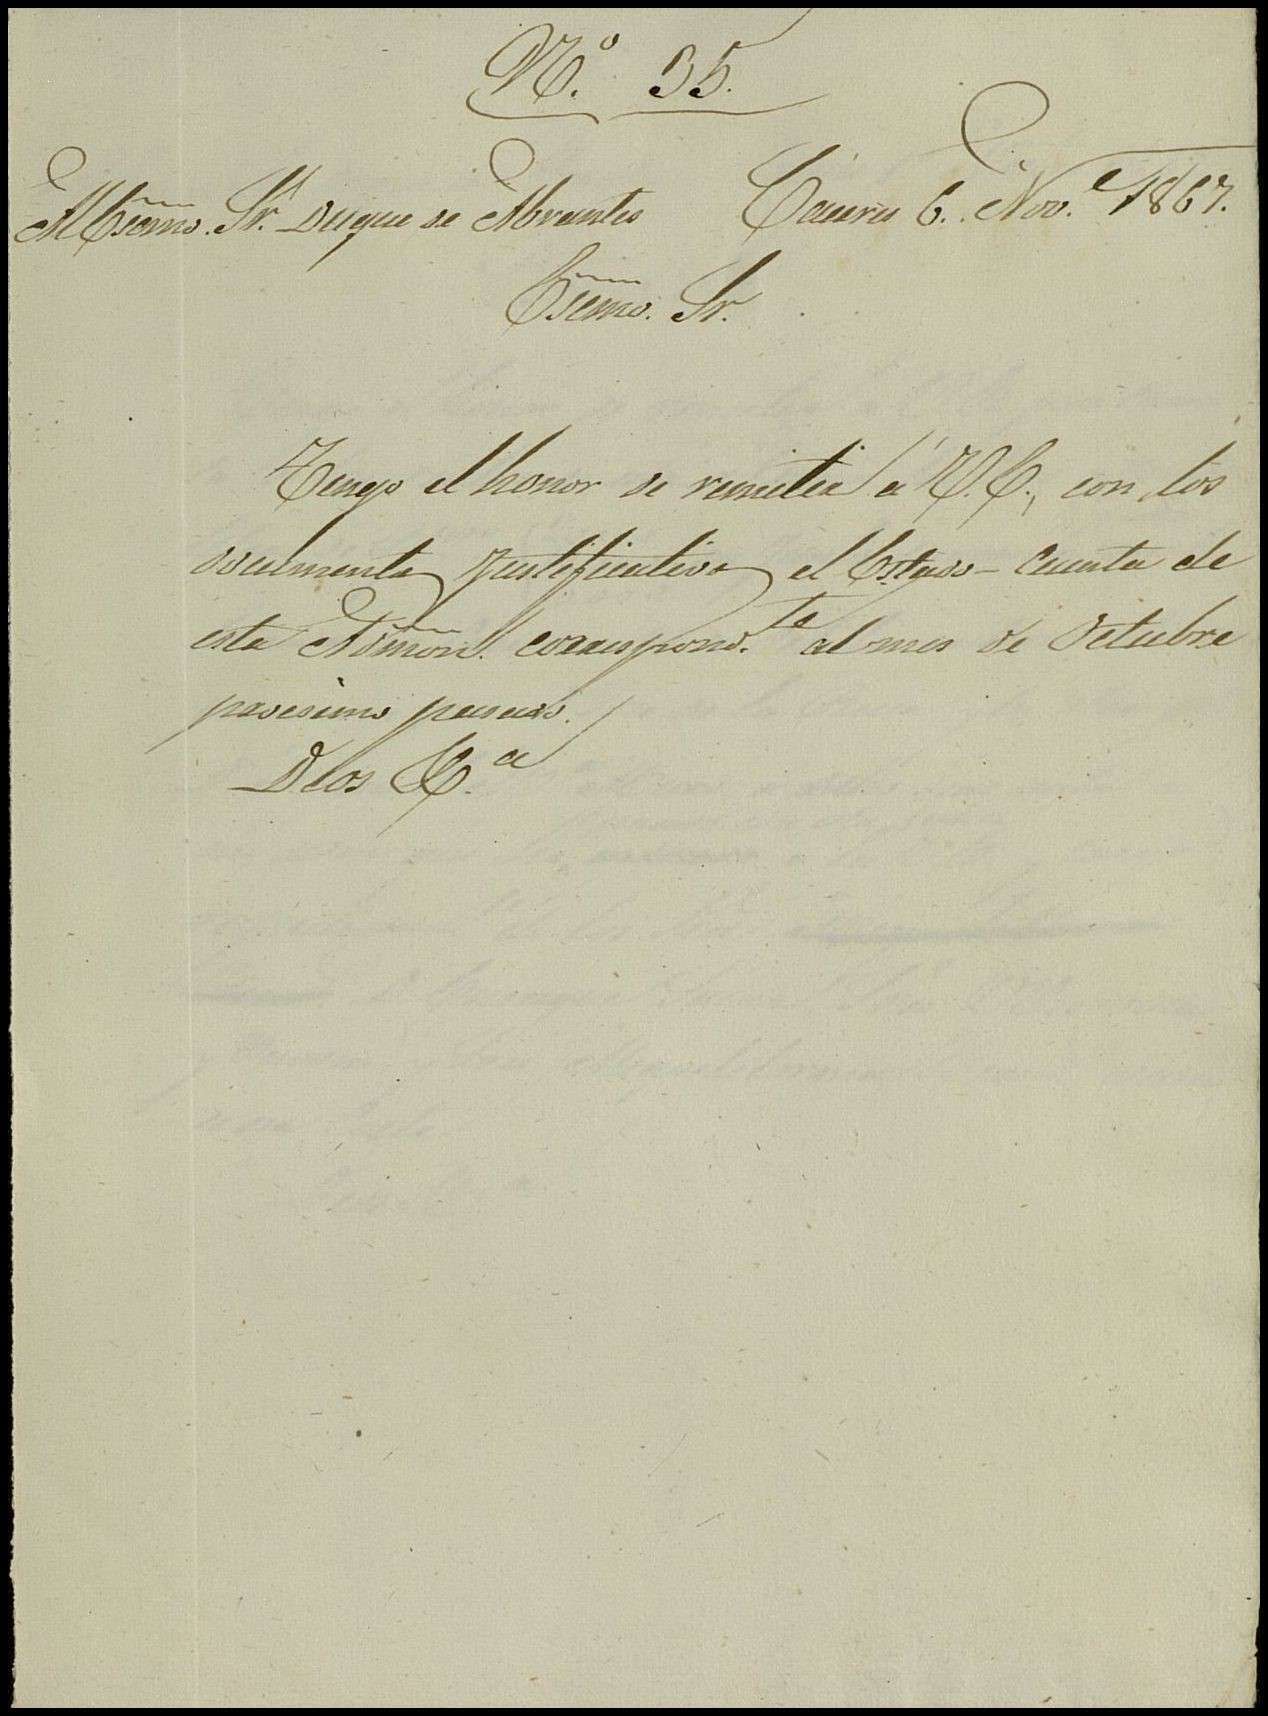 N.º 35.
Al Escmo. Sr. Duque de Abrantes Cáceres 6. Nov.e 1867.
Escmo. Sr.
Tengo el honor de remitir á V. E., con los
documentos justificativos el Estado-Cuenta de
esta Admon. correspond.te al mes de Octubre
procsimo pasado.
Dios &.a